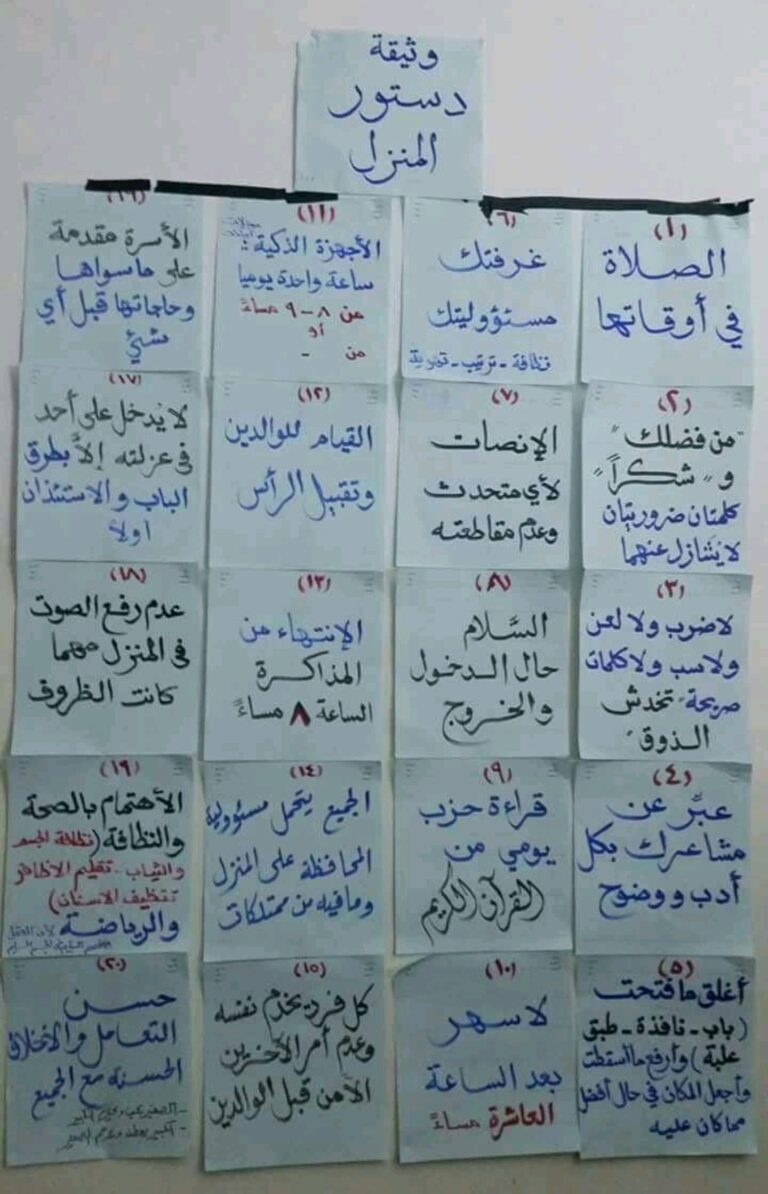 وثيقة
دستور
المنزل
(١)
الصلاة
في أوقاتها
(٢)
"من فضلك"
و "شكراً"
كلمتان ضروريتان
لا يُتنازل عنهما
(٣)
لا ضرب ولا لعن
ولا سب ولا كلمات
صريحة "تخدش
الذوق"
(٤)
عبّر عن
مشاعرك بكل
أدب ووضوح
(٥)
أغلق ما فتحت
(باب - نافذة - طبق
علبة) وأرفع ما أسقطت
وأجعل المكان في حال أفضل
مما كان عليه
(٦)
غرفتك
مسئووليتك
نظافة - ترتيب - تهوية
(٧)
الإنصات
لأي متحدث
وعدم مقاطعته
(٨)
السَّلام
حال الدخول
والخروج
(٩)
قراءة حزب
يومي من
القرآن الكريم
(١٠)
لا سهر
بعد الساعة
العاشرة مساءً
(١١)
الأجهزة الذكية:
ساعة واحدة يوميا
من ٨ - ٩ مساءً
أو
من -
(١٢)
القيام للوالدين
وتقبيل الرأس
(١٣)
الإنتهاء من
المذاكرة
الساعة ٨ مساءً
(١٤)
الجميع يتحمل مسئوولية
المحافظة على المنزل
وما فيه من ممتلكات
(١٥)
كل فرد يخدم نفسه
وعدم أمر الآخرين
الأمن قبل الوالدين
(١٦)
الأسرة مقدمة
على ما سواها
وحاجاتها قبل أي
شئ
(١٧)
لا يُدخل على أحد
في عزلته إلاَّ بطرق
الباب والاستئذان
أولاً
(١٨)
عدم رفع الصوت
في المنزل مهما
كانت الظروف
(١٩)
الأهتمام بالصحة
والنظافة (نظافة الجسم
والثياب - تقليم الأظافر
تنظيف الأسنان)
والرياضة لأن العقل
السليم في الجسم السليم
(٢٠)
حسن
التعامل والأخلاق
الحسنة مع الجميع
- الصغير يحب ويحترم الكبير
- الكبير يعطف ويرحم الصغير